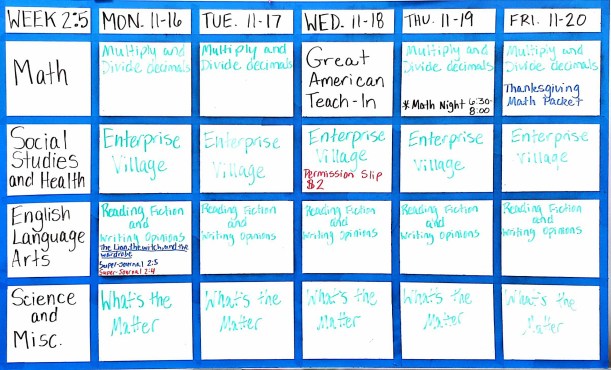 WEEK 2:5
MON. 11-16
TUE. 11-17
WED. 11-18
THU. 11-19
FRI. 11-20
Math
Multiply and
Divide decimals
Multiply and
Divide decimals
Great
American
Teach-In
Multiply and
Divide decimals
* Math Night 6:30-
8:00
Multiply and
Divide decimals
Thanksgiving
Math Packet
Social
Studies
and Health
Enterprise
Village
Enterprise
Village
Enterprise
Village
Permission Slip
$2
Enterprise
Village
Enterprise
Village
English
Language
Arts
Reading Fiction
and
Writing Opinions
The Lion, the witch, and the
wardrobe
Super-Journal 2:5
Super-Journal 2:4
Reading Fiction
and
Writing Opinions
Reading Fiction
and
Writing Opinions
Reading Fiction
and
Writing Opinions
Reading Fiction
and
Writing Opinions
Science
and
Misc.
What's the
Matter
What's the
Matter
What's the
Matter
What's the
Matter
What's the
Matter